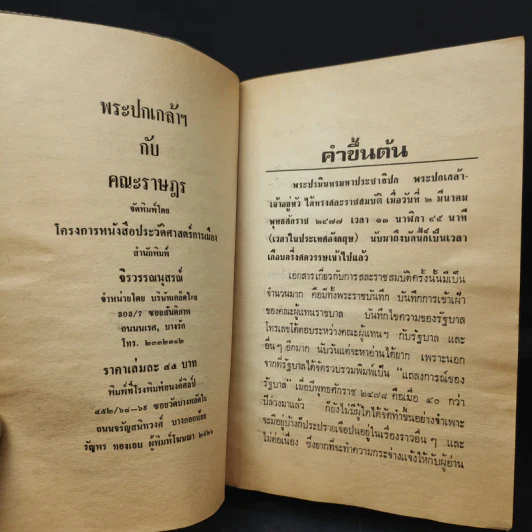 พระปกเกล้าฯ
กับ
คณะราษฎร
จัดพิมพ์โดย
โครงการหนังสือประวัติศาสตร์การเมือง
สำนักพิมพ์
จิรวรรณนุสรณ์
จำหน่ายโดย บริษัทเคล็ดไทย
ซอยสันติภาพ
ถนนนเรศ, บางรัก
โทร. ๒๓๓๒๓๘๒
ราคาเล่มละ ๔๕ บาท
พิมพ์ที่โรงพิมพ์
ซอยวัดบางพลัดใน
ถนนจรัญสนิทวงศ์ บางกอกน้อย
รัญพร ทองเอม ผู้พิมพ์โฆษณา ๒๕๒๖
คำขึ้นต้น
พระปรมินทรมหาประชาธิปก พระปกเกล้า-
เจ้าอยู่หัว ได้ทรงสละราชสมบัติ เมื่อวันที่ ๒ มีนาคม
พุทธศักราช ๒๔๗๗ เวลา ๑๓ นาฬิกา ๔๕ นาที
(เวลาในประเทศอังกฤษ) นับมาถึงบัดนี้ก็เป็นเวลา
เกือบครึ่งศตวรรษเข้าไปแล้ว
เอกสารเกี่ยวกับการสละราชสมบัติครั้งนั้นมีเป็น
จำนวนมาก คือมีทั้งพระราชบันทึก บันทึกการเข้าเฝ้า
ของคณะผู้แทนราชบาล บันทึกไขความของรัฐบาล
โทรเลขโต้ตอบระหว่างคณะผู้แทนฯ กับรัฐบาล และ
อื่นๆ อีกมาก นับวันแต่จะหาอ่านได้ยาก เพราะนอก
จากที่รัฐบาลได้จัดรวบรวมพิมพ์เป็น "แถลงการณ์ของ
รัฐบาล" เมื่อปีพุทธศักราช ๒๔๗๘ คือเมื่อ ๔๐ กว่า
ปีล่วงมาแล้ว ก็ยังไม่มีผู้ใดได้จัดทำขึ้นอย่างจำเพาะ
จะมีอยู่บ้างก็ประปรายเจือปนอยู่ในเรื่องราวอื่นๆ และ
ไม่ต่อเนื่อง ซึ่งยากที่จะทำความกระจ่างแจ้งให้กับผู้อ่าน